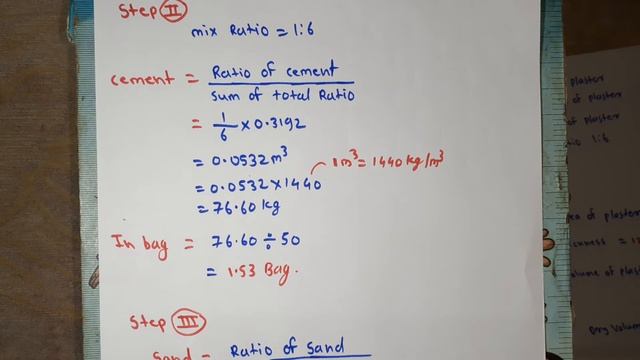 Step II
mix Ratio = 1:6
cement = Ratio of cement
sum of total Ratio
= 1/6 × 0.3192
= 0.0532 m³
= 0.0532 × 1440
1 m³ = 1440 kg/m³
= 76.60 kg
In bag = 76.60 ÷ 50
= 1.53 Bag.
Step III
Sand = Ratio of Sand
plaster
of plaster
of plaster
1:6
of plaster
of plas
Dry Volum